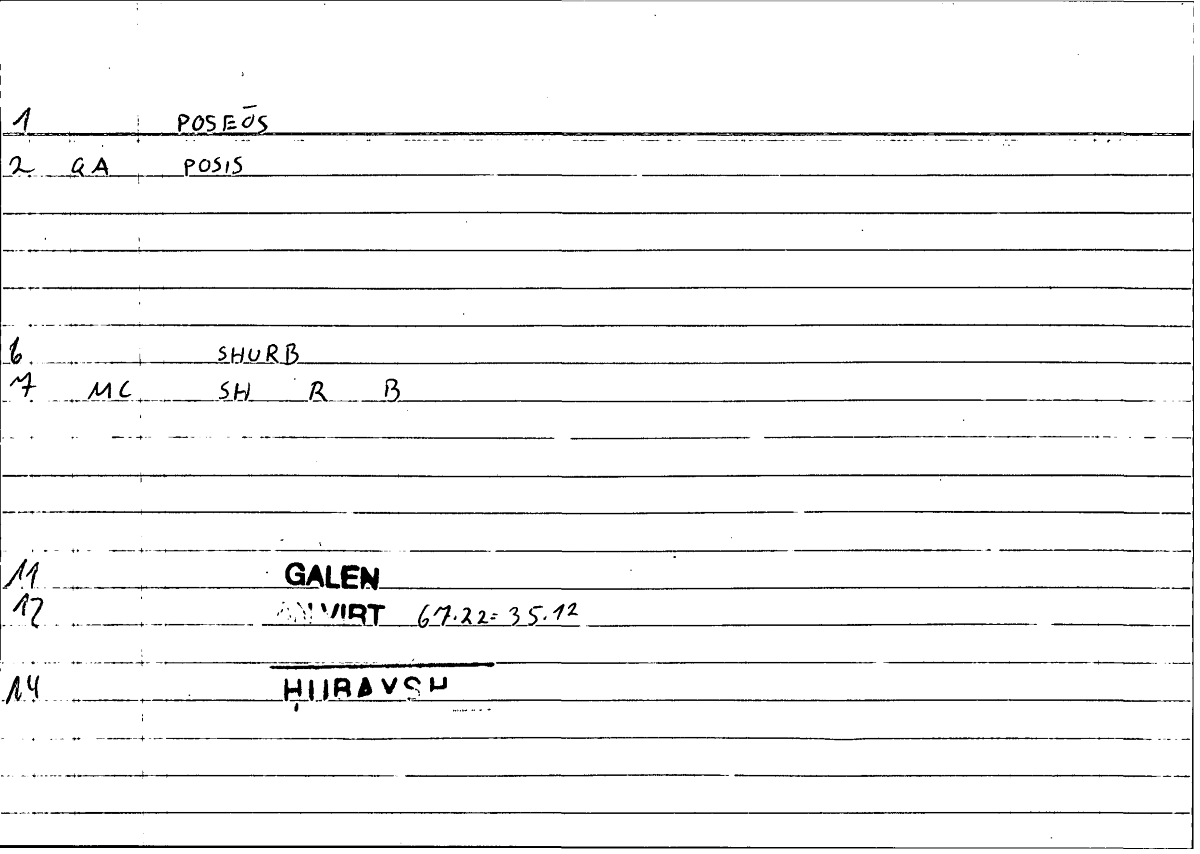 1 POSEŌS
2 GA POSIS
6 SHURB
7 MC SH R B
11 GALEN
12 AN VIRT 67.22=35.12
14 ḤURAYSH